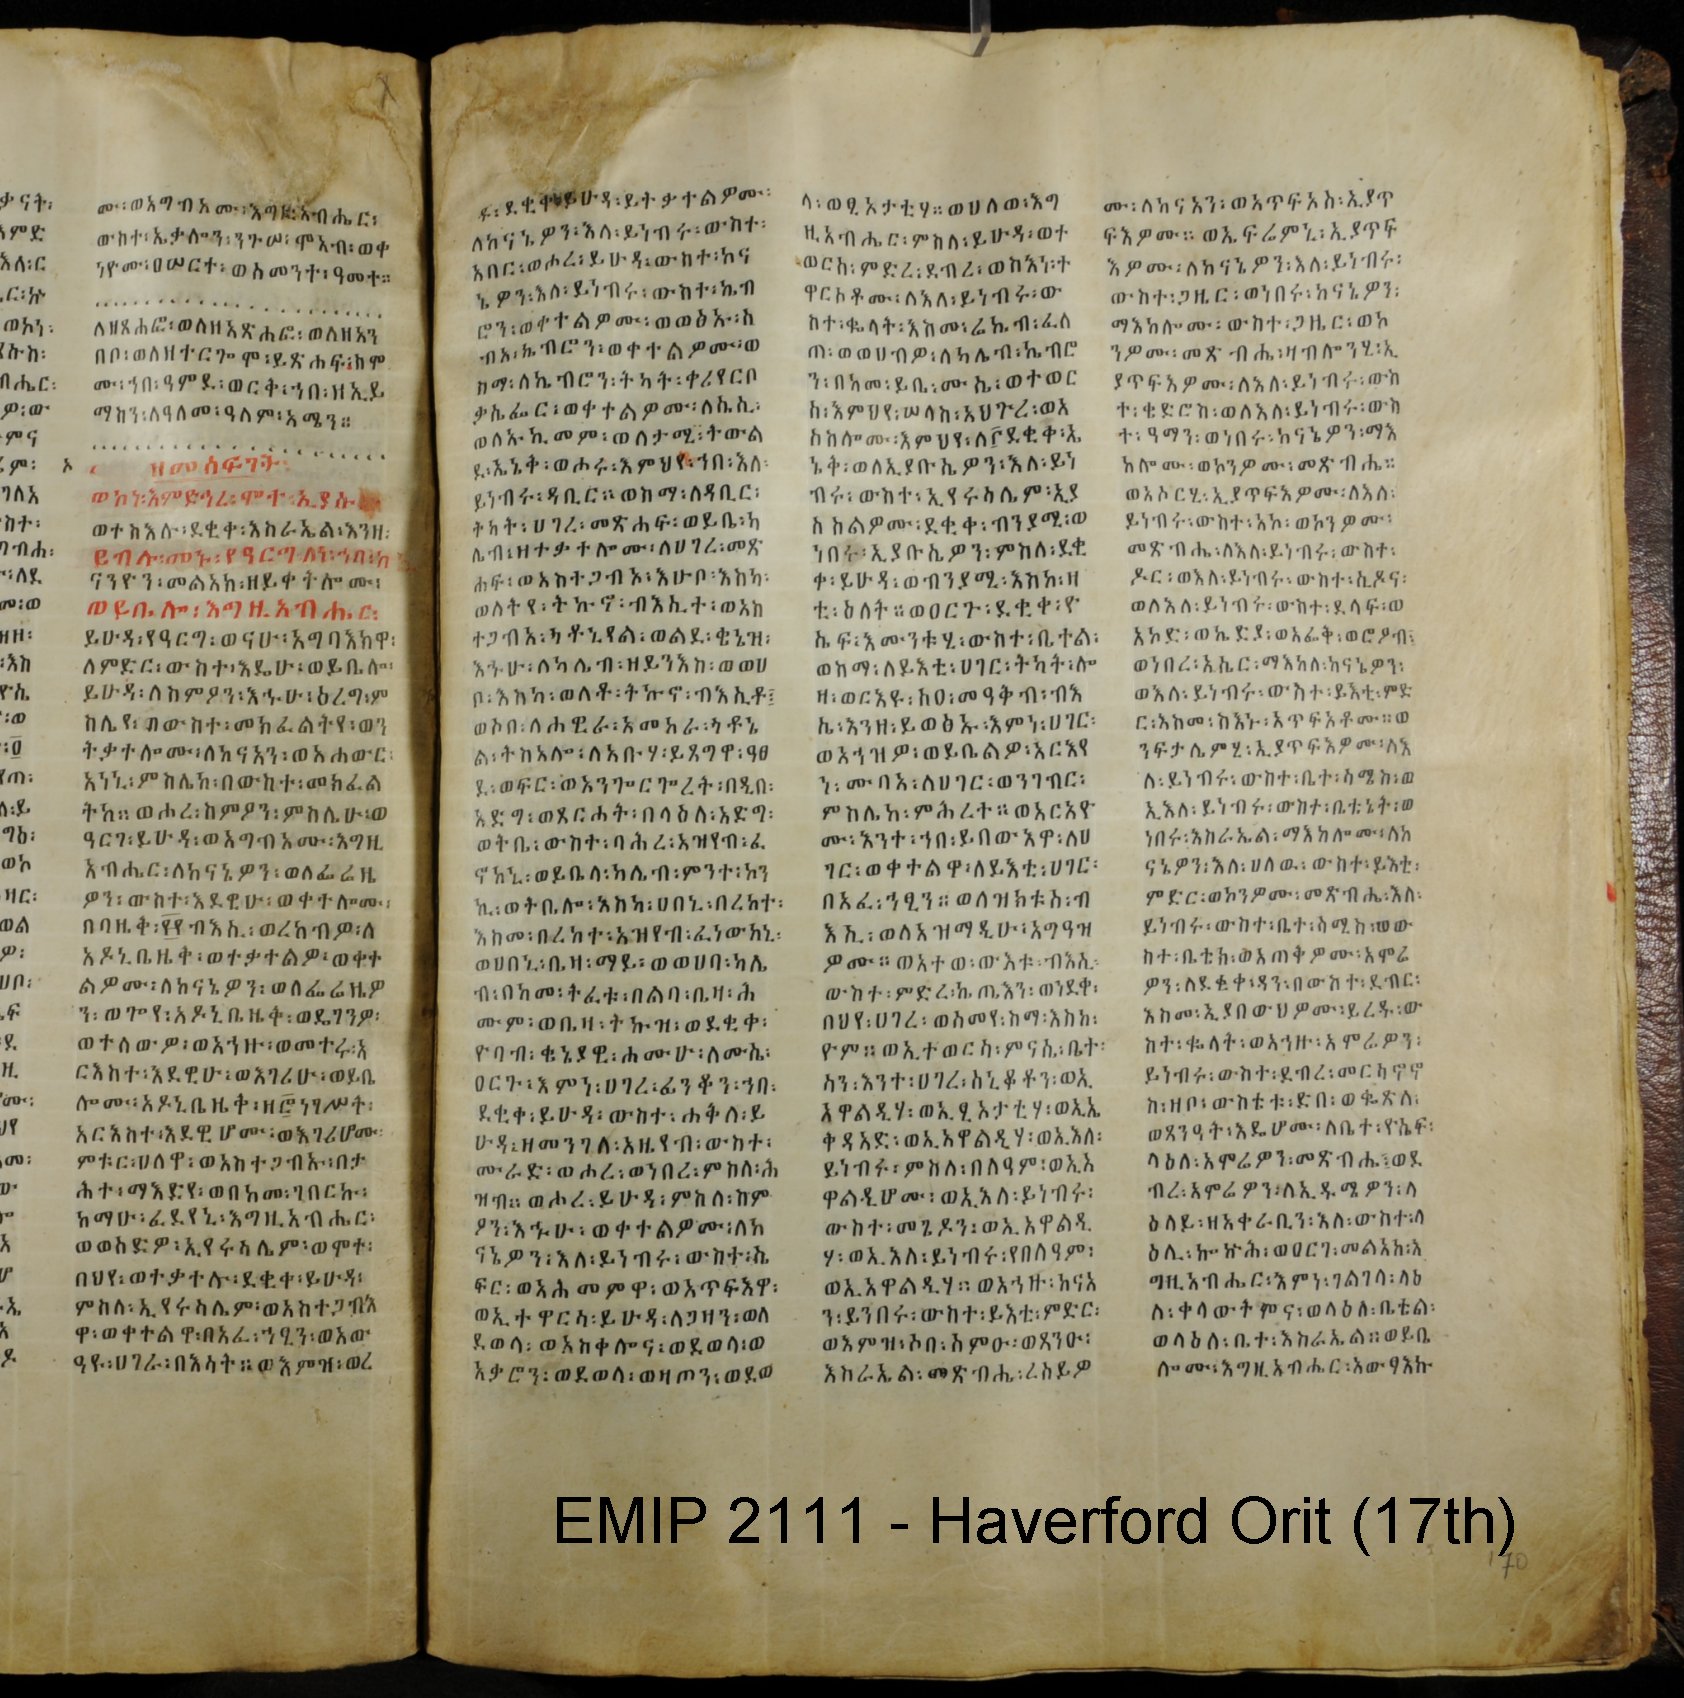 ሙ፡ወአግብአሙ፡እግዚአብሔር፡
ውስተ፡ኤቃሎን፡ንጉሠ፡ሞአብ፡ወቀ
ነዮሙ፡ዐሠርተ፡ወስመንተ፡ዓመተ።
ለዘጸሐፎ፡ወለዘአጽሐፎ፡ወለዘአን
በቦ፡ወለዘተርጐሞ፡ይጽሐፍ፡ስሞ
ሙ፡ኀበ፡ዓምደ፡ወርቅ፡ኀበ፡ዘኢይ
ማስን፡ለዓለመ፡ዓለም፡አሜን።
ዘመሳፍንት፡
ወኮነ፡እምድኅረ፡ሞተ፡ኢያሱ
ወተስእሉ፡ደቂቀ፡እስራኤል፡እንዘ፡
ይብሉ፡መኑ፡የዓርግ፡ለነ፡ኀበ፡ከ
ናንዮን፡መልአክ፡ዘይቀትሎሙ፡
ወይቤሎ፡እግዚአብሔር፡
ይሁዳ፡የዓርግ፡ወናሁ፡አግባእክዋ፡
ለምድር፡ውስተ፡እዴሁ፡ወይቤሎ፡
ይሁዳ፡ለስምዖን፡እኁሁ፡ዕረግ፡ም
ስሌየ፡ውስተ፡መክፈልትየ፡ወን
ትቃተሎሙ፡ለከናአን፡ወአሐውር፡
አነኒ፡ምስሌከ፡በውስተ፡መክፈል
ትከ።ወሖረ፡ስምዖን፡ምስሌሁ፡ወ
ዓርገ፡ይሁዳ፡ወአግብአሙ፡እግዚ
አብሔር፡ለከናኔዎን፡ወለፌሬዜ
ዎን፡ውስተ፡እደዊሁ፡ወቀተሎሙ፡
በባዜቅ፡፻፻ብእሲ፡ወረከብዎ፡ለ
አዶኒቤዜቅ፡ወተቃተልዎ፡ወቀተ
ልዎሙ፡ለከናኔዎን፡ወለፌሬዜዎ
ን፡ወጐየ፡አዶኒቤዜቅ፡ወዴገንዎ፡
ወተለውዎ፡ወአኀዙ፡ወመተሩ፡አ
ርእስተ፡እደዊሁ፡ወእገሪሁ፡ወይቤ
ሎሙ፡አዶኒቤዜቅ፡ዘ፸ነገሥት፡
አርእስተ፡እደዊሆሙ፡ወእገሪሆሙ፡
ምቱር፡ሀለዋ፡ወአስተጋብኡ፡በታ
ሕተ፡ማእድየ፡ወበከመ፡ገበርኩ፡
ከማሁ፡ፈደየኒ፡እግዚአብሔር፡
ወወሰድዎ፡ኢየሩሳሌም፡ወሞተ፡
በህየ፡ወተቃተሉ፡ደቂቀ፡ይሁዳ፡
ምስለ፡ኢየሩሳሌም፡ወአስተጋብእ
ዋ፡ወቀተልዋ፡በአፈ፡ኀፂን፡ወአው
ዓዩ፡ሀገራ፡በእሳት።ወእምዝ፡ወረ
ዱ፡ደቂቀ፡ይሁዳ፡ይትቃተልዎሙ፡
ለከናኔዎን፡እለ፡ይነብሩ፡ውስተ፡
አበር፡ወሖረ፡ይሁዳ፡ውስተ፡ከና
ኔዎን፡እለ፡ይነብሩ፡ውስተ፡ኬብ
ሮን፡ወቀተልዎሙ፡ወወፅኡ፡ሰ
ብአ፡ኬብሮን፡ወቀተልዎሙ፡ወ
ስማ፡ለኬብሮን፡ትካት፡ቀሪየርቦ
ቃሴፌር፡ወቀተልዎሙ፡ለሴሲ፡
ወለኡኪመም፡ወለታሚ፡ትውል
ደ፡ኤኔቅ፡ወሖሩ፡እምህየ፡ኀበ፡እለ፡
ይነብሩ፡ዳቢር።ወስማ፡ለዳቢር፡
ትካት፡ሀገረ፡መጽሐፍ፡ወይቤ፡ካ
ሌብ፡ዘተቃተሎሙ፡ለሀገረ፡መጽ
ሐፍ፡ወአስተጋብአ፡እሁቦ፡እስካ፡
ወለትየ፡ትኩኖ፡ብእሲተ፡ወአስ
ተጋብአ፡ጎቶኒየል፡ወልደ፡ቄኔዝ፡
እኁሁ፡ለካሌብ፡ዘይንእስ፡ወወሀ
ቦ፡እስካ፡ወለቶ፡ትኩኖ፡ብእሲቶ፤
ወሶበ፡ለሐዊራ፡አመአራ፡ጎቶኔ
ል፡ትስአሎ፡ለአቡሃ፡ይጸግዋ፡ዓፀ
ደ፡ወፍር፡ወአንጐርጐረት፡በዲበ፡
አድግ፡ወጸርሐት፡በላዕለ፡አድግ፡
ወትቤ፡ውስተ፡ባሕረ፡አዝየብ፡ፈ
ኖከኒ፡ወይቤላ፡ካሌብ፡ምንተ፡ኮን
ኪ፡ወትቤሎ፡እስካ፡ሀበኒ፡በረከተ፡
እስመ፡በረከተ፡አዝየብ፡ፈነውከኒ፡
ወሀበኒ፡ቤዛ፡ማይ፡ወወሀባ፡ካሌ
ብ፡በከመ፡ትፈቱ፡በልባ፡ቤዛ፡ሕ
ሙም፡ወቤዛ፡ትኩዝ፡ወደቂቀ፡
ዮባብ፡ቄኔያዊ፡ሐሙሁ፡ለሙሴ፡
ዐርጉ፡እምነ፡ሀገረ፡ፊንቆን፡ኀበ፡
ደቂቀ፡ይሁዳ፡ውስተ፡ሐቅለ፡ይ
ሁዳ፡ዘመንገለ፡አዜየብ፡ውስተ፡
ሙራድ፡ወሖረ፡ወነበረ፡ምስለ፡ሕ
ዝብ።ወሖረ፡ይሁዳ፡ምስለ፡ስም
ዖን፡እኁሁ፡ወቀተልዎሙ፡ለከ
ናኔዎን፡እለ፡ይነብሩ፡ውስተ፡ሴ
ፍር፡ወአሕመምዋ፡ወአጥፍእዋ፡
ወኢተዋርሳ፡ይሁዳ፡ለጋዛን፡ወለ
ደወላ፡ወአስቀሎና፡ወደወላ፡ወ
አቃሮን፡ወደወላ፡ወዛጦን፡ወደወ
ላ፡ወፂኦታቲሃ።ወሀለወ፡እግ
ዚአብሔር፡ምስለ፡ይሁዳ፡ወተ
ወርሰ፡ምድረ፡ደብረ፡ወስእነ፡ተ
ዋርሶቶሙ፡ለእለ፡ይነብሩ፡ው
ስተ፡ቈላት፡እስመ፡ሬኬብ፡ፈለ
ጠ፡ወወሀብዎ፡ለካሌብ፡ኬብሮ
ን፡በከመ፡ይቤ፡ሙሴ፡ወተወር
ሰ፡እምህየ፡ሠላስ፡አህጉረ፡ወአ
ሰስሎሙ፡እምህየ፡ለ፫ደቂቀ፡ኤ
ኔቅ፡ወለኢያቡሴዎን፡እለ፡ይነ
ብሩ፡ውስተ፡ኢየሩሳሌም፡ኢያ
ሰስልዎሙ፡ደቂቀ፡ብንያሚ፡ወ
ነበሩ፡ኢያቡሴዎን፡ምስለ፡ደቂ
ቀ፡ይሁዳ፡ወብንያሚ፡እስከ፡ዛ
ቲ፡ዕለት።ወዐርጉ፡ደቂቀ፡ዮ
ሴፍ፡እሙንቱሂ፡ውስተ፡ቤተል፡
ወስማ፡ለይእቲ፡ሀገር፡ትካት፡ሎ
ዛ፡ወርእዩ፡ሰዐ፡መዓቅብ፡ብእ
ሴ፡እንዘ፡ይወፅኡ፡እምነ፡ሀገር፡
ወአኀዝዎ፡ወይቤልዎ፡አርእየ
ነ፡ሙባአ፡ለሀገር፡ወንገብር፡
ምስሌከ፡ምሕረተ።ወአርአዮ
ሙ፡እንተ፡ኀበ፡ይበውእዋ፡ለሀ
ገር፡ወቀተልዋ፡ለይእቲ፡ሀገር፡
በአፈ፡ኀፂን።ወለዝክቱስ፡ብ
እሲ፡ወለአዝማዲሁ፡አግዓዝ
ዎሙ።ወአተወ፡ውእቱ፡ብእሲ፡
ውስተ፡ምድረ፡ኬጤእን፡ወነደቀ፡
በህየ፡ሀገረ፡ወሰመየ፡ስማ፡እስከ፡
ዮም።ወኢተወርሰ፡ምናሴ፡ቤተ፡
ሳን፡እንተ፡ሀገረ፡ሰኒቆቶን፡ወኢ
አዋልዲሃ፡ወኢፂኦታቲሃ፡ወኢኤ
ቅዳአድ፡ወኢአዋልዲሃ፡ወኢእለ፡
ይነብሩ፡ምስለ፡በለዓም፡ወኢአ
ዋልዲሆሙ፡ወኢእለ፡ይነብሩ፡
ውስተ፡መጌዶን፡ወኢአዋልዲ
ሃ፡ወኢእለ፡ይነብሩ፡የበለዓም፡
ወኢአዋልዲሃ።ወአኀዙ፡ከናአ
ን፡ይንበሩ፡ውስተ፡ይእቲ፡ምድር፡
ወእምዝ፡ሶበ፡ሰምዑ፡ወጸንዑ፡
እስራኤል፡መጽብሔ፡ረሰይዎ
ሙ፡ለከናአን፡ወአጥፍአሰ፡ኢያጥ
ፍእዎሙ።ወኤፍሬምኒ፡ኢያጥፍ
እዎሙ፡ለከናኔዎን፡እለ፡ይነብሩ፡
ውስተ፡ጋዜር፡ወነበሩ፡ከናኔዎን፡
ማእከሎሙ፡ውስተ፡ጋዜር፡ወኮ
ንዎሙ፡መጽብሔ፡ዛብሎንሂ፡ኢ
ያጥፍእዎሙ፡ለእለ፡ይነብሩ፡ውስ
ተ፡ቄድሮስ፡ወለእለ፡ይነብሩ፡ውስ
ተ፡ዓማን፡ወነበሩ፡ከናኔዎን፡ማእ
ከሎሙ፡ወኮንዎሙ፡መጽብሔ።
ወአሶርሂ፡ኢያጥፍእዎሙ፡ለእለ፡
ይነብሩ፡ውስተ፡አኮ፡ወኮንዎሙ፡
መጽብሔ፡ለእለ፡ይነብሩ፡ውስተ፡
ዶር፡ወእለ፡ይነብሩ፡ውስተ፡ሲዶና፡
ወለእለ፡ይነብሩ፡ውስተ፡ደላፍ፡ወ
አኮድ፡ወኬድያ፡ወአፌቅ፡ወሮዖብ፡
ወነበረ፡አሴር፡ማእከለ፡ከናኔዎን፡
ወእለ፡ይነብሩ፡ውስተ፡ይእቲ፡ምድ
ር፡እስመ፡ስእኑ፡አጥፍኦቶሙ።ወ
ንፍታሌምሂ፡ኢያጥፍእዎሙ፡ለእ
ለ፡ይነብሩ፡ውስተ፡ቤተ፡ሳሜስ፡ወ
ኢእለ፡ይነብሩ፡ውስተ፡ቤቴኔት፡ወ
ነበሩ፡እስራኤል፡ማእከሎሙ፡ለከ
ናኔዎን፡እለ፡ሀለዉ፡ውስተ፡ይእቲ፡
ምድር፡ወኮንዎሙ፡መጽብሔ፡እለ፡
ይነብሩ፡ውስተ፡ቤተ፡ሳሚስ፡ወው
ስተ፡ቤቴክ፡ወአጠቅዎሙ፡አሞሬ
ዎን፡ለደቂቀ፡ዳን፡በውስተ፡ደብር፡
እስመ፡ኢያበውህዎሙ፡ይረዱ፡ው
ስተ፡ቈላት፡ወአኀዙ፡አሞሬዎን፡
ይነብሩ፡ውስተ፡ደብረ፡መርሳኖኖ
ስ፡ዘቦ፡ውስቴቱ፡ድበ፡ወቈጽለ፡
ወጸንዓት፡እዴሆሙ፡ለቤተ፡ዮሴፍ፡
ላዕለ፡አሞሬዎን፡መጽብሔ፤ወደ
ብረ፡አሞሬዎን፡ለኢዱሜዎን፡ላ
ዕለይ፡ዘአቀራቢን፡እለ፡ውስተ፡ላ
ዕሊ፡ኰኵሕ፡ወዐርገ፡መልአከ፡እ
ግዚአብሔር፡እምነ፡ገልገላ፡ላዕ
ለ፡ቀላውትሞና፡ወላዕለ፡ቤቴል፡
ወላዕለ፡ቤተ፡እስራኤል።ወይቤ
ሎሙ፡እግዚአብሔር፡አውፃእኩ
EMIP 2111 - Haverford Orit (17th)
170